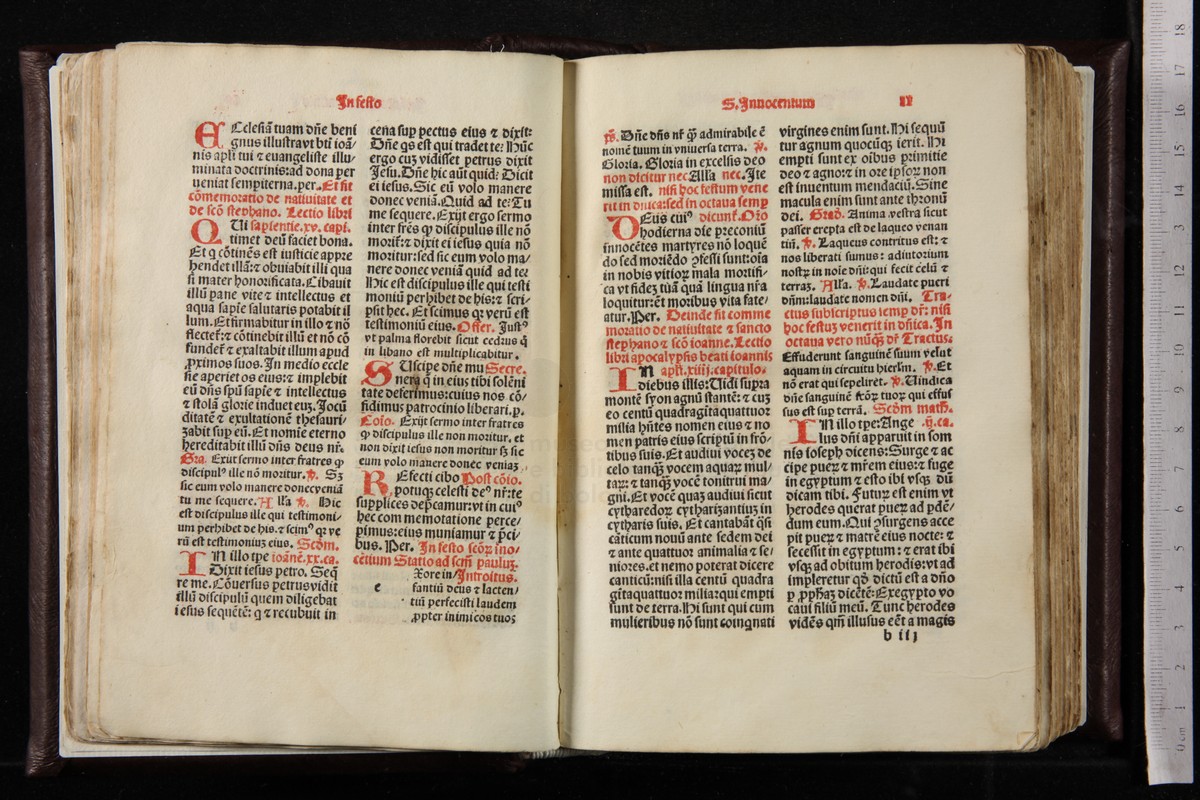 In festo
EClesiã tuam dñe beni
gnus illustra vt bti ioã/
nis apli tui ⁊ euangeliste illu/
minata doctrinis: ad dona per
ueniat sempiterna. per. Et fit
cõmemoratio de natiuitate et
de scõ stephano. Lectio libri
QUi sapientie. xv. capi.
timet deũ faciet bona.
Et q cõtinẽs est iusticie appre
hendet illã: ⁊ obuiabit illi qua
si mater honorificata. Cibauit
illũ pane vite ⁊ intellectus et
aqua sapiẽ salutaris potabit il
lum. Et firmabitur in illo ⁊ nõ
flectet: ⁊ cõtinebit illũ et nõ cõ
fundet ⁊ exaltabit illum apud
proximos suos. In medio eccle
sie aperiet os eius: ⁊ implebit
eũ dñs spũ sapiẽ ⁊ intellectus
⁊ stolã glorie induet euz. Jocũ
ditatẽ ⁊ exultationẽ thesauri/
zabit sup eũ. Et nomie eterno
hereditabit illũ dñs deus nr̃.
Gra. Exijt sermo inter fratres ꝙ
discipulꝰ ille nõ moritur. ℣. Sz
sic eum volo manere donec veniã
tu me sequere. Alla ℣. Hic
est discipulus ille qui testimoni/
um perhibet de his. ⁊ scimꝰ qꝛ ve
rũ est testimoniuz eius. Scðm.
IN illo tpe ioãnẽ. xx. ca.
Dixit iesus petro. Seq̃
re me. Cõuersus petrus vidit
illũ discipulũ quem diligebat
iesus sequẽtẽ: q ⁊ recubuit in
cena sup pectus eius ⁊ dixit:
Dñe qs est qui tradet te: Hũc
ergo cuz vidisset petrus dixit
Jesu. Dñe hic aũt quid: Dicit
ei iesus. Sic eũ volo manere
donec veniã. Quid ad te: Tu
me sequere. Exijt ergo sermo
inter frẽs ꝙ discipulus ille nõ
morit̃: ⁊ dixit ei iesus quia nõ
moritur: sed sic eum volo ma/
nere donec veniã quid ad te:
Hic est discipulus ille qui testi
moniũ perhibet de his: ⁊ scri/
psit hec. Et scimus qꝛ verũ est
testimoniũ eius. Offer. Justꝰ
vt palma florebit sicut cedrus q̃
in libano est multiplicabitur.
SUscipe dñe mu Secre.
nera q̃ in eius tibi solẽni
tate deferimus: cuius nos cõ/
fidimus patrocinio liberari. p.
Cõio. Exijt sermo inter fratres
ꝙ discipulus ille non moritur. et
non dixit iesus non moritur sz sic
eum volo manere donec veniaz.
REfecti cibo Post cõio.
potuqz celesti deꝰ nr̃: te
supplices dep̃camur: vt in cuiꝰ
hec commemoratione perce/
pimus: eius muniamur ⁊ p̃ci/
bus. Per. In festo scõꝝ ino/
cẽtium Statio ad scm̃ pauluz.
Xore in/ Introitus.
e fantiũ deus ⁊ lacten/
tiũ perfecisti laudem
propter inimicos tuos
S. Innocentum
ps. Dñe dñs nr̃ ꝙ admirabile ẽ
nomẽ tuum in vniuersa terra. ℣.
Gloria. Gloria in excelsis deo
non dicitur nec Alla nec. Ite
missa est. nisi hoc festum vene
rit in dñica: sed in octaua semp
DEus cuiꝰ dicunt̃. Orõ
hodierna die preconiũ
innocẽtes martyres nõ loquẽ
do sed moriẽdo ꝯfessi sunt: oĩa
in nobis vitioꝝ mala mortifi/
ca vt fidez tuã quã lingua nr̃a
loquitur: ẽt moribus vita fate/
atur. Per. Deinde fit comme
moratio de natiuitate ⁊ sancto
stephano ⁊ scõ ioanne. Lectio
libri apocalypsis beati ioannis
IN apli. xiiij. capitulo.
diebus illis: Uidi supra
montẽ syon agnũ stantẽ: ⁊ cuz
eo centũ quadragĩtaquattuor
milia hñtes nomen eius ⁊ no
men patris eius scriptũ in frõ/
tibus suis. Et audiui vocez de
celo tanqz vocem aquaꝝ mul/
taꝝ: ⁊ tanqz vocẽ tonitrui ma/
gni. Et vocẽ quaz audiui sicut
cytharedoꝝ cytharizantiuz in
cytharis suis. Et cantabãt q̃si
cãticum nouũ ante sedem dei
⁊ ante quattuor animalia ⁊ se/
niores. et nemo poterat dicere
canticũ: nisi illa centũ quadra
gĩtaquattuor milia: qui empti
sunt de terra. Hi sunt qui cum
mulieribus nõ sunt coinquati
virgines enim sunt. Hi sequũ
tur agnum quocũqz ierit. Hi
empti sunt ex oĩbus primitie
deo ⁊ agno: ⁊ in ore ipsoꝝ non
est inuentum mendaciũ. Sine
macula enim sunt ante thronũ
dei. Grad. Anima vestra sicut
passer erepta est de laqueo venan
tiũ. ℣. Laqueus contritus est: ⁊
nos liberati sumus: adiutorium
nostꝝ in noie dñi: qui fecit celũ ⁊
terraz. Alla. ℣. Laudate pueri
dñm: laudate nomen dñi. Tra/
ctus subscriptus semp dr̃: nisi
hoc festuz venerit in dñica. In
octaua vero nũqz dr̃ Tractus.
Effuderunt sanguinẽ suum velut
aquam in circuitu hierlm̃. ℣. Et
nõ erat qui sepeliret. ℣. Uindica
dñe sanguinẽ scõꝝ tuoꝝ qui effus
sus est sup terrã. Scðm math.
IN illo tpe: Ange .ij. ca.
lus dñi apparuit in som
nis ioseph dicens: Surge ⁊ ac
cipe pueꝝ ⁊ mr̃em eius: ⁊ fuge
in egyptum ⁊ esto ibi vsqz dũ
dicam tibi. Futuꝝ est enim vt
herodes querat pueꝝ ad pdẽ/
dum eum. Qui ꝯsurgens acce
pit pueꝝ ⁊ matrẽ eius nocte: ⁊
secessit in egyptum: ⁊ erat ibi
vsqz ad obitum herodis: vt ad
impleretur qð dictũ est a dño
p ꝓphaz dicẽtẽ: Ex egypto vo
caui filiũ meũ. Tunc herodes
vidẽs qm̃ illusus eẽt a magis
b iij